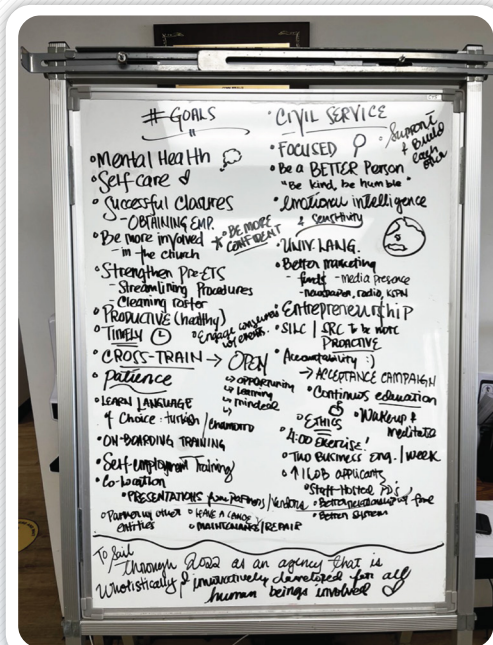 # GOALS
• Mental Health
• Self care
• Successful Closures
- OBTAINING EMP.
• Be more involved
- in the church
* BE MORE
CONFIDENT
• Strengthen Pre-ETS
- Streamlining Procedures
- Cleaning roster
• PRODUCTIVE (healthy)
• TIMELY
• Engage consumers
w/ events
• CROSS-TRAIN → OPEN
↳ opportunity
↳ learning
↳ mindset
• Patience
• LEARN LANGUAGE
of Choice: turkish / CHAMORRO
• ON-BOARDING TRAINING
• Self-employment Training
• Co-location
• PRESENTATIONS from partners/Vendors
• Partner w/ other
entities
• LEAVE A LANDS
• MAINTENANCE/REPAIR
• CIVIL SERVICE
• FOCUSED
• Support
& Build
each
other
• Be a BETTER Person
"Be kind, be humble"
• emotional intelligence
& sensitivity
• UNIV. LANG.
• Better marketing
- funds - media presence
- newspaper, radio, KSPN
• Entrepreneurship
• SILC / SRC to be more
PROACTIVE
• Accountability :)
→ ACCEPTANCE CAMPAIGN
• Continuos education
• ETHICS
• Wakeup &
meditate
• 4:00 Exercise!
• TWO BUSINESS Eng. / WEEK
• ↑ ILOB applicants
• Staff-Hosted PD's
• Better relationship w/
• Better System
To Sail
through 2022 as an agency that is
Wholistically & innovatively developed for all
human beings involved